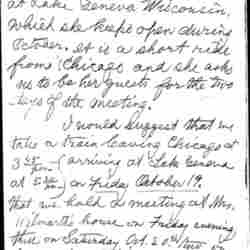 at Lake Geneva Wisconsin,
which she keeps open during
October. It is a short ride
from Chicago and she asks
us to be her guests for the two
days of the meeting.
I would suggest that we
take a train leaving Chicago at
3 arriving at Lake Geneva
at 5 on Friday October 19.
that we hold a meeting at Mrs.
house on Friday evening
on Saturday Oct. 20th